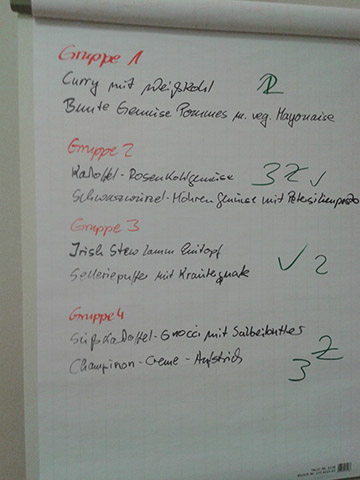 Gruppe 1
Curry mit Weißkohl
Bunte Gemüse Pommes m. veg. Mayonaise
Gruppe 2
Kartoffel-Rosenkohlgemüse 3 2 ✓
Schwarzwurzel-Möhren Gemüse mit Petersilienpesto
Gruppe 3
Irish Stew Lamm Eintopf
Selleriepuffer mit Kräuterquark ✓ 2
Gruppe 4
Süßkartoffel-Gnocci mit Salbeibutter 2
Champinon-Creme-Aufstrich 3